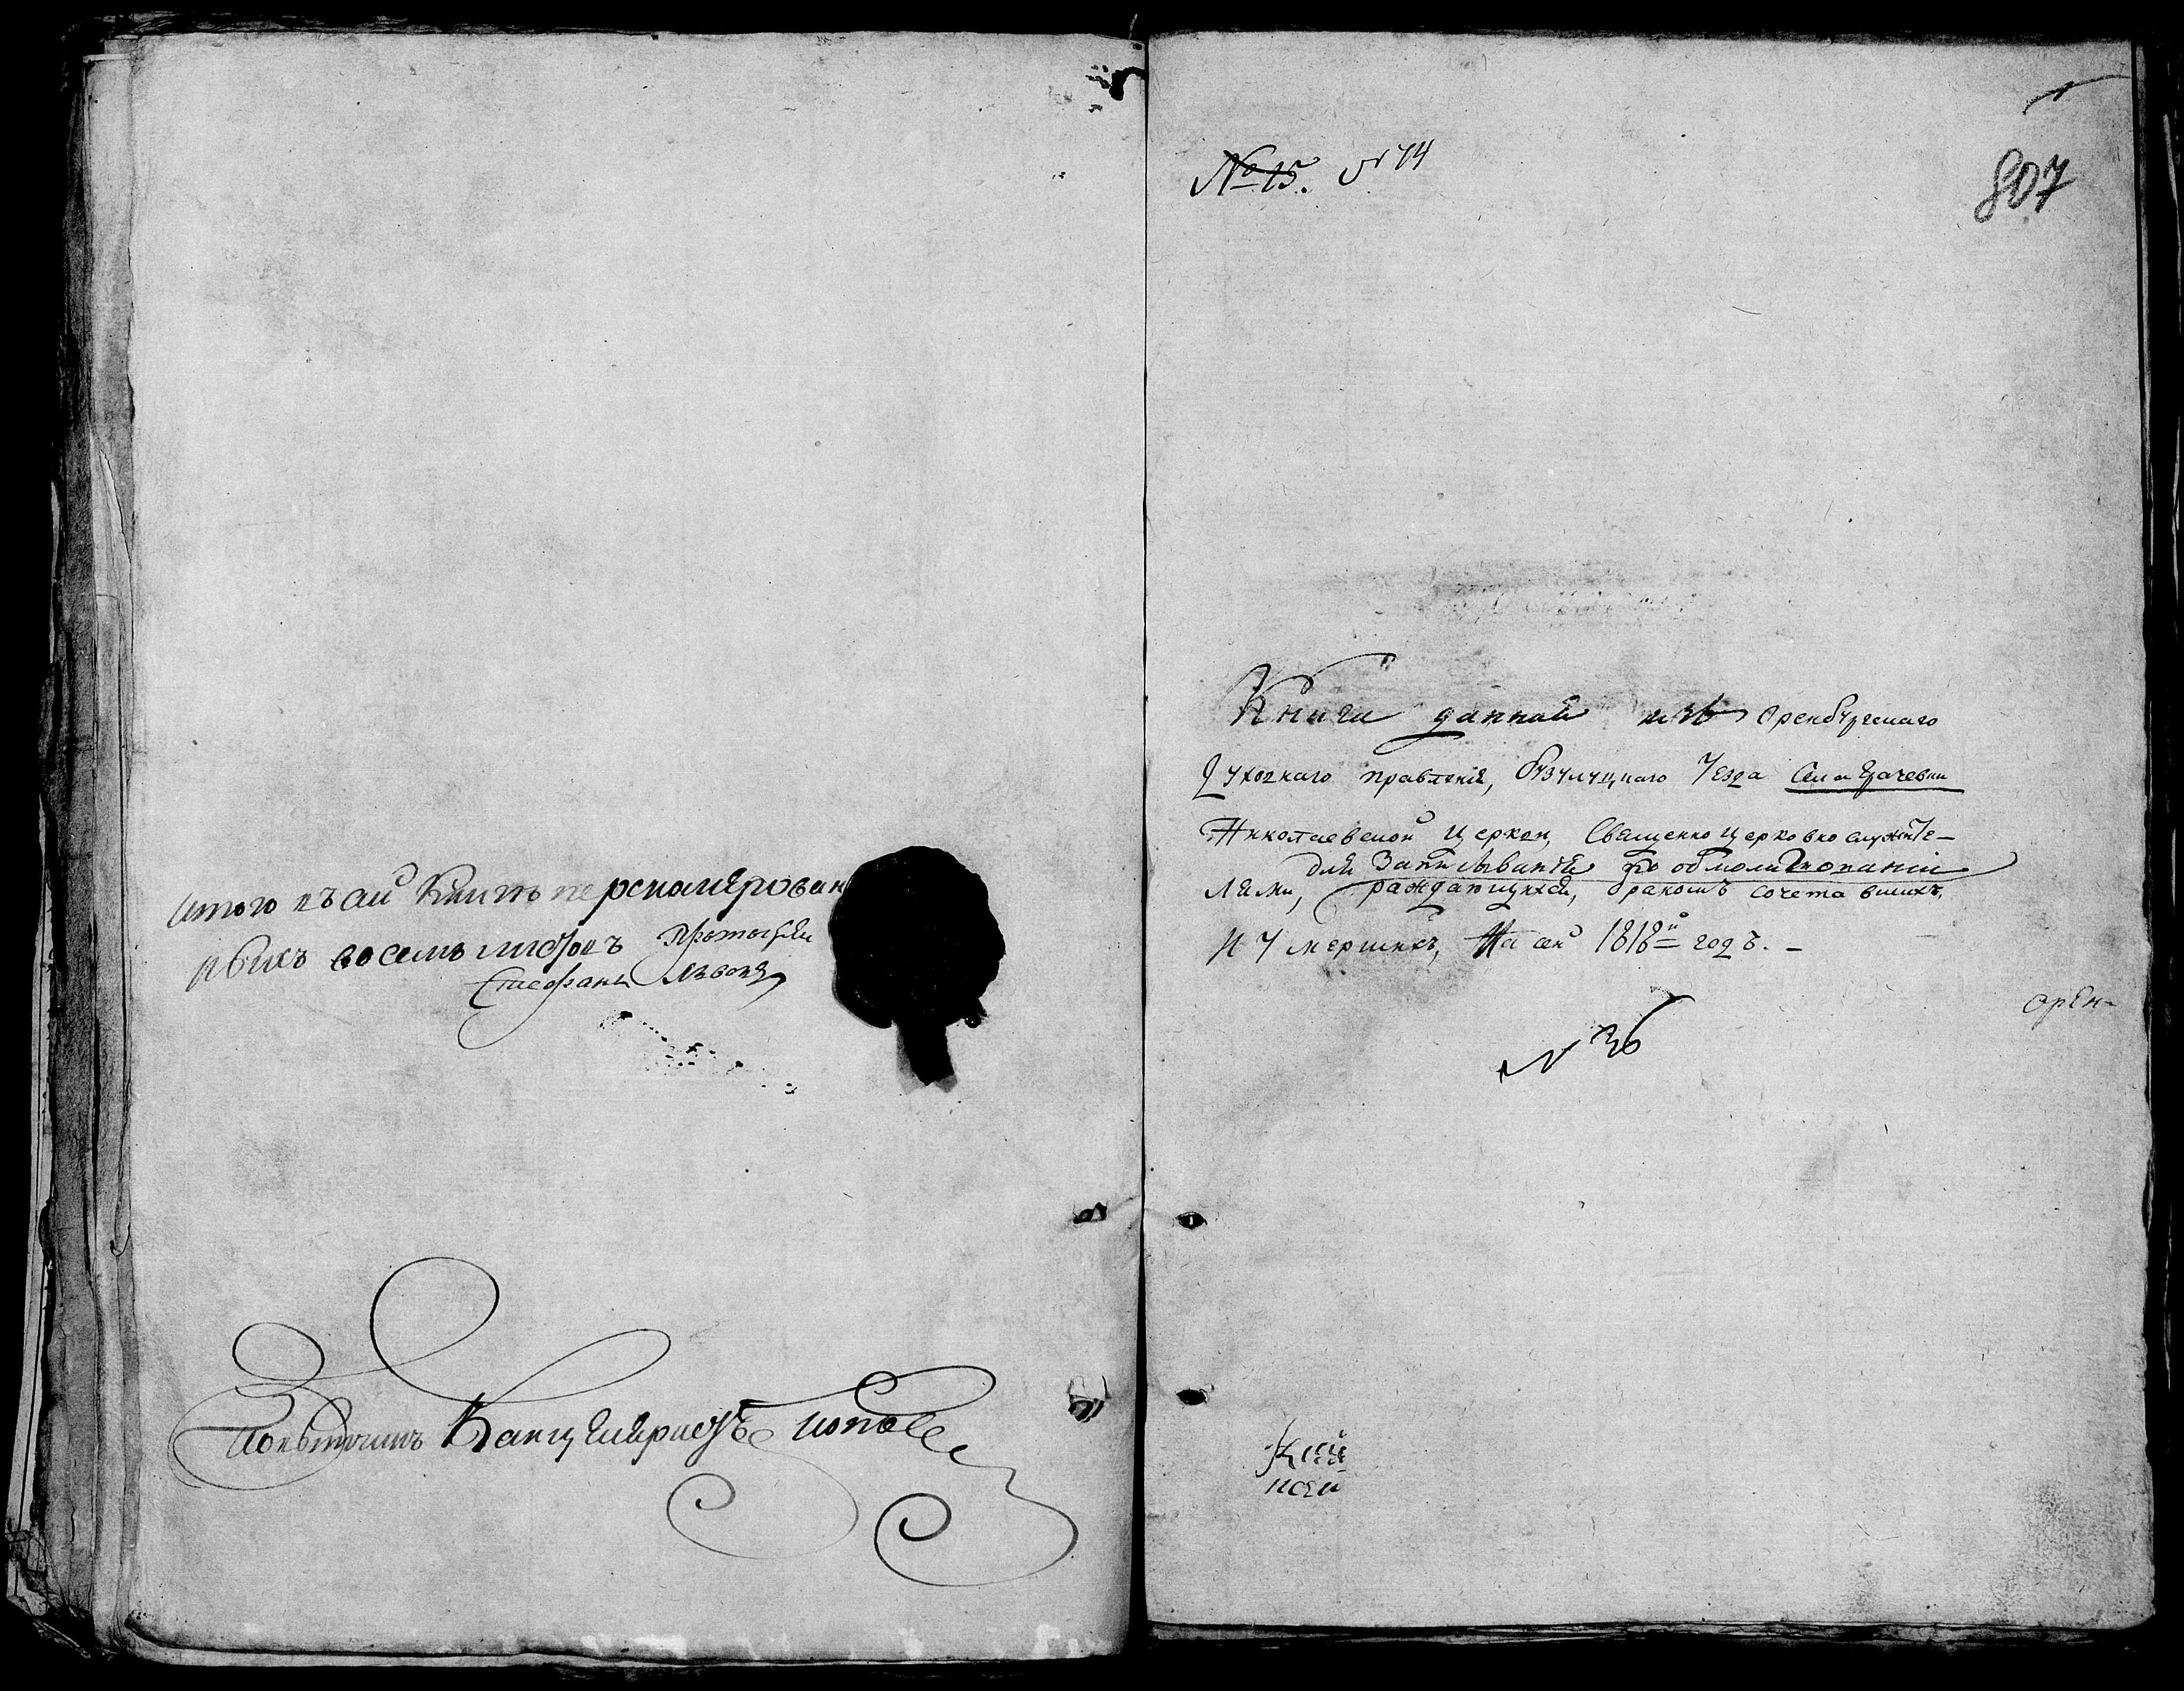 Итого въ сей книгѣ переномерован
ныхъ восемь листовъ Протоіерей
Стефанъ Львовъ
Повытчикъ Канцеляристъ Попов
№ 15. № 14
807
Книга данная изъ Оренбургскаго
Духовнаго правленія, бузулуцкаго уезда Села Грачевки
Николаевской церкви, Священно церковно служите-
для Записыванія по обмолитвованіи
лями, раждающихся, бракомъ сочетавшихъ,
И умершихъ, На сей 1818й годъ. –
Орен-
№ 36